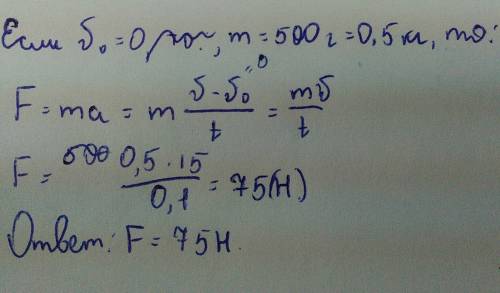 Если υ₀ = 0 м/с, m = 500 г = 0,5 кг, то:
F = ma = m (υ - υ₀)/t = mυ/t
F = (0,5 · 15)/0,1 = 75 (Н)
Ответ: F = 75 Н.